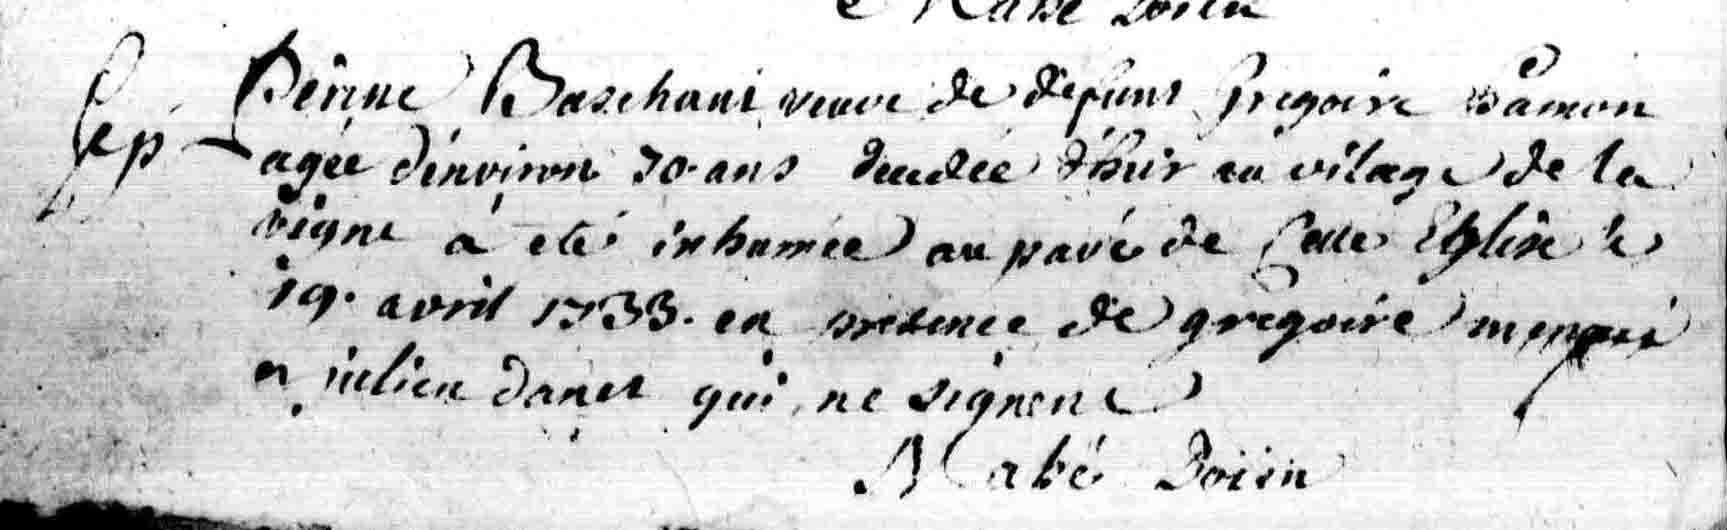 Mahé Doien
Sep
Perine Baschant veuve de defunt Gregoire hamon
agée d'environ 70 ans decedée d'hier au vilage de la
vigne à eté inhumée au pavé de cette Eglise le
19. avril 1733. en presence de gregoire
et julien danet qui ne signent
Mahé Doien